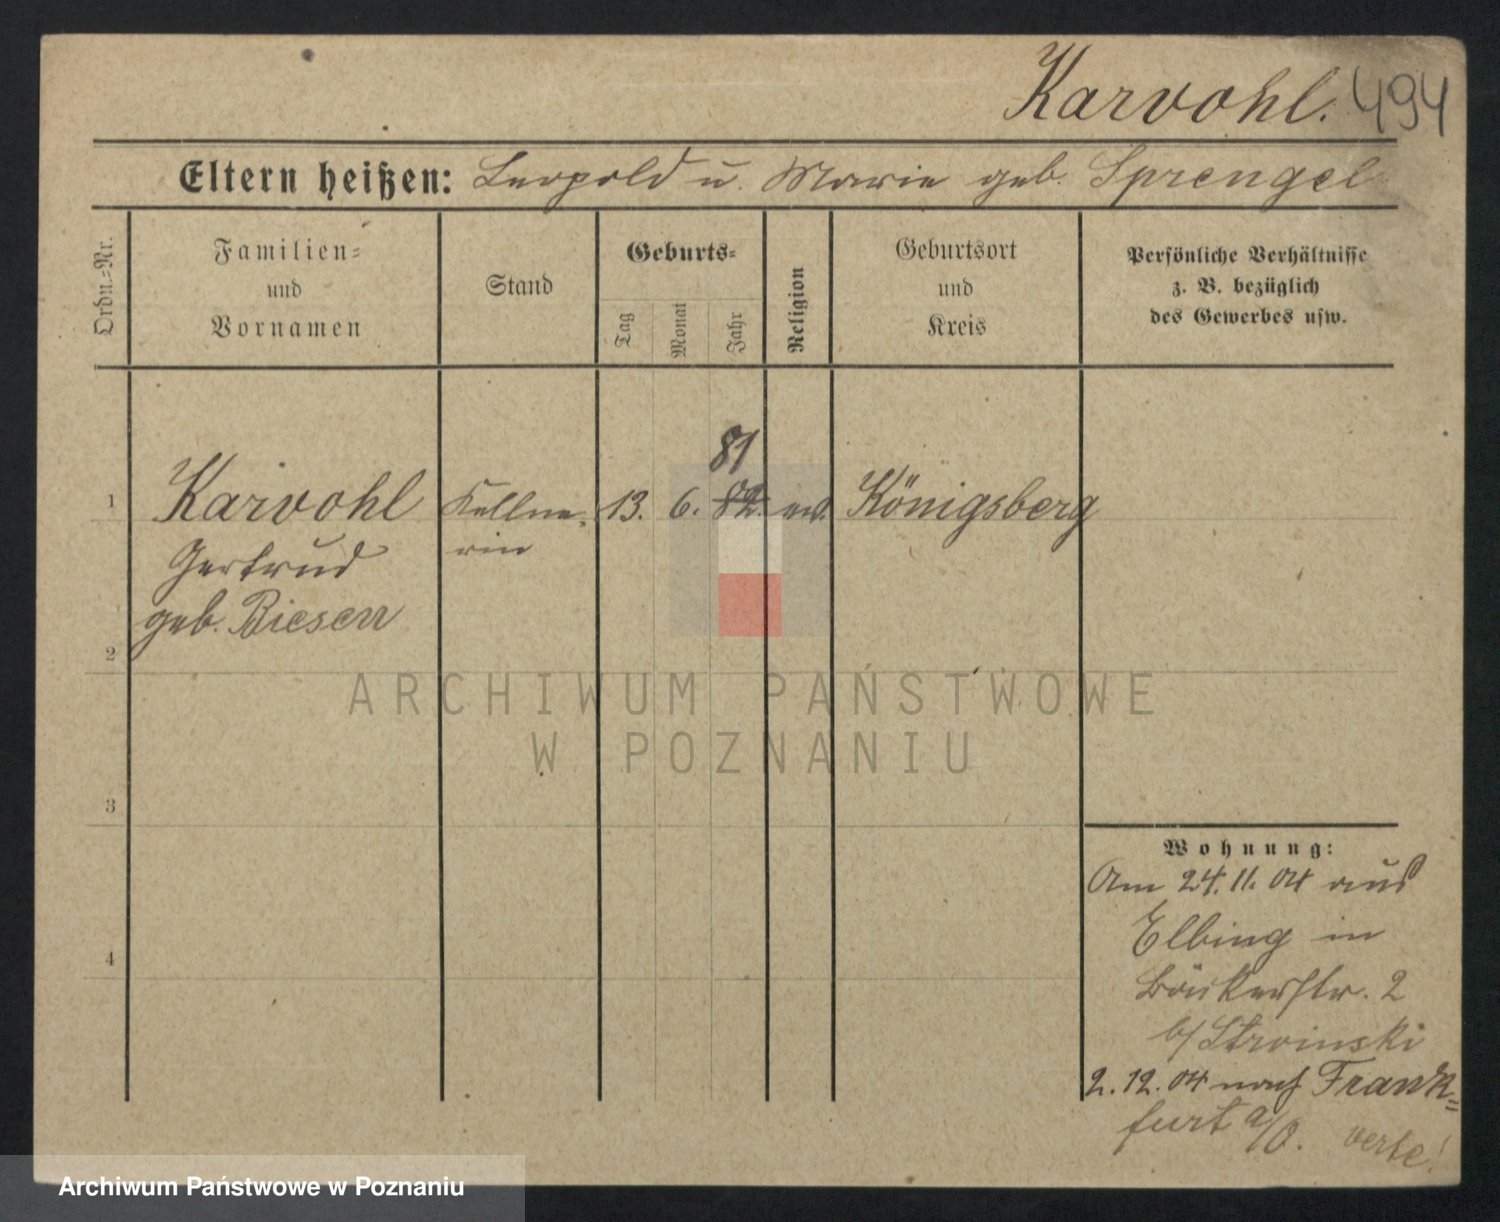 Karvohl. 494
Eltern heißen: Leopold u. Marie geb. Sprengel
Ordn.=Nr.
Familien=
und
Vornamen
Stand
Geburts=
Tag
Monat
Jahr
Religion
Geburtsort
und
Kreis
Persönliche Verhältnisse
z. B. bezüglich
des Gewerbes usw.
81
1 Karvohl Kellne- 13. 6. 82. ev. Königsberg
Gertrud rin
geb. Biesen
2
3
4
ARCHIWUM PAŃSTWOWE
W POZNANIU
Wohnung:
Am 24.11.04 aus
Elbing in
Bäckerstr. 2
b/ Stroinski
2.12.04 nach Frank=
furt a/O. verte!
Archiwum Państwowe w Poznaniu